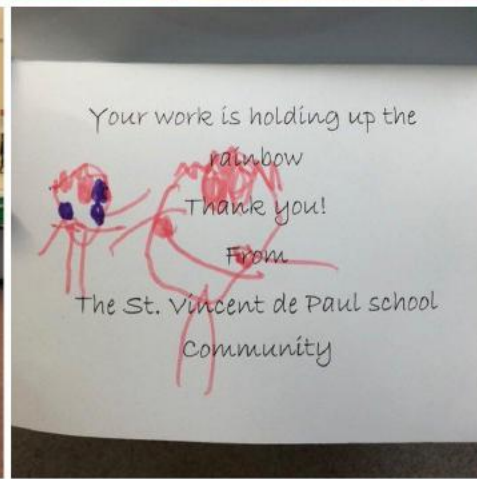 Your work is holding up the
rainbow
Thank you!
From
The St. Vincent de Paul school
Community